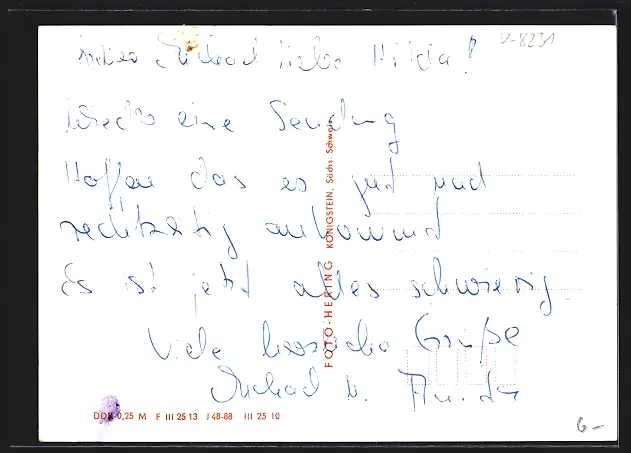 Lieber Michael liebe Hilda!
V-8231
Wieder eine Sendung
Hoffen das es gut und
rechtzeitig ankommt
Es ist jetzt alles schwierig
Viele herzliche Grüße
Michael u.
FOTO-HERING KÖNIGSTEIN, Sächs. Schweiz
DDR 0,25 M F III 25 13 J 48-68 III 25 10
6-